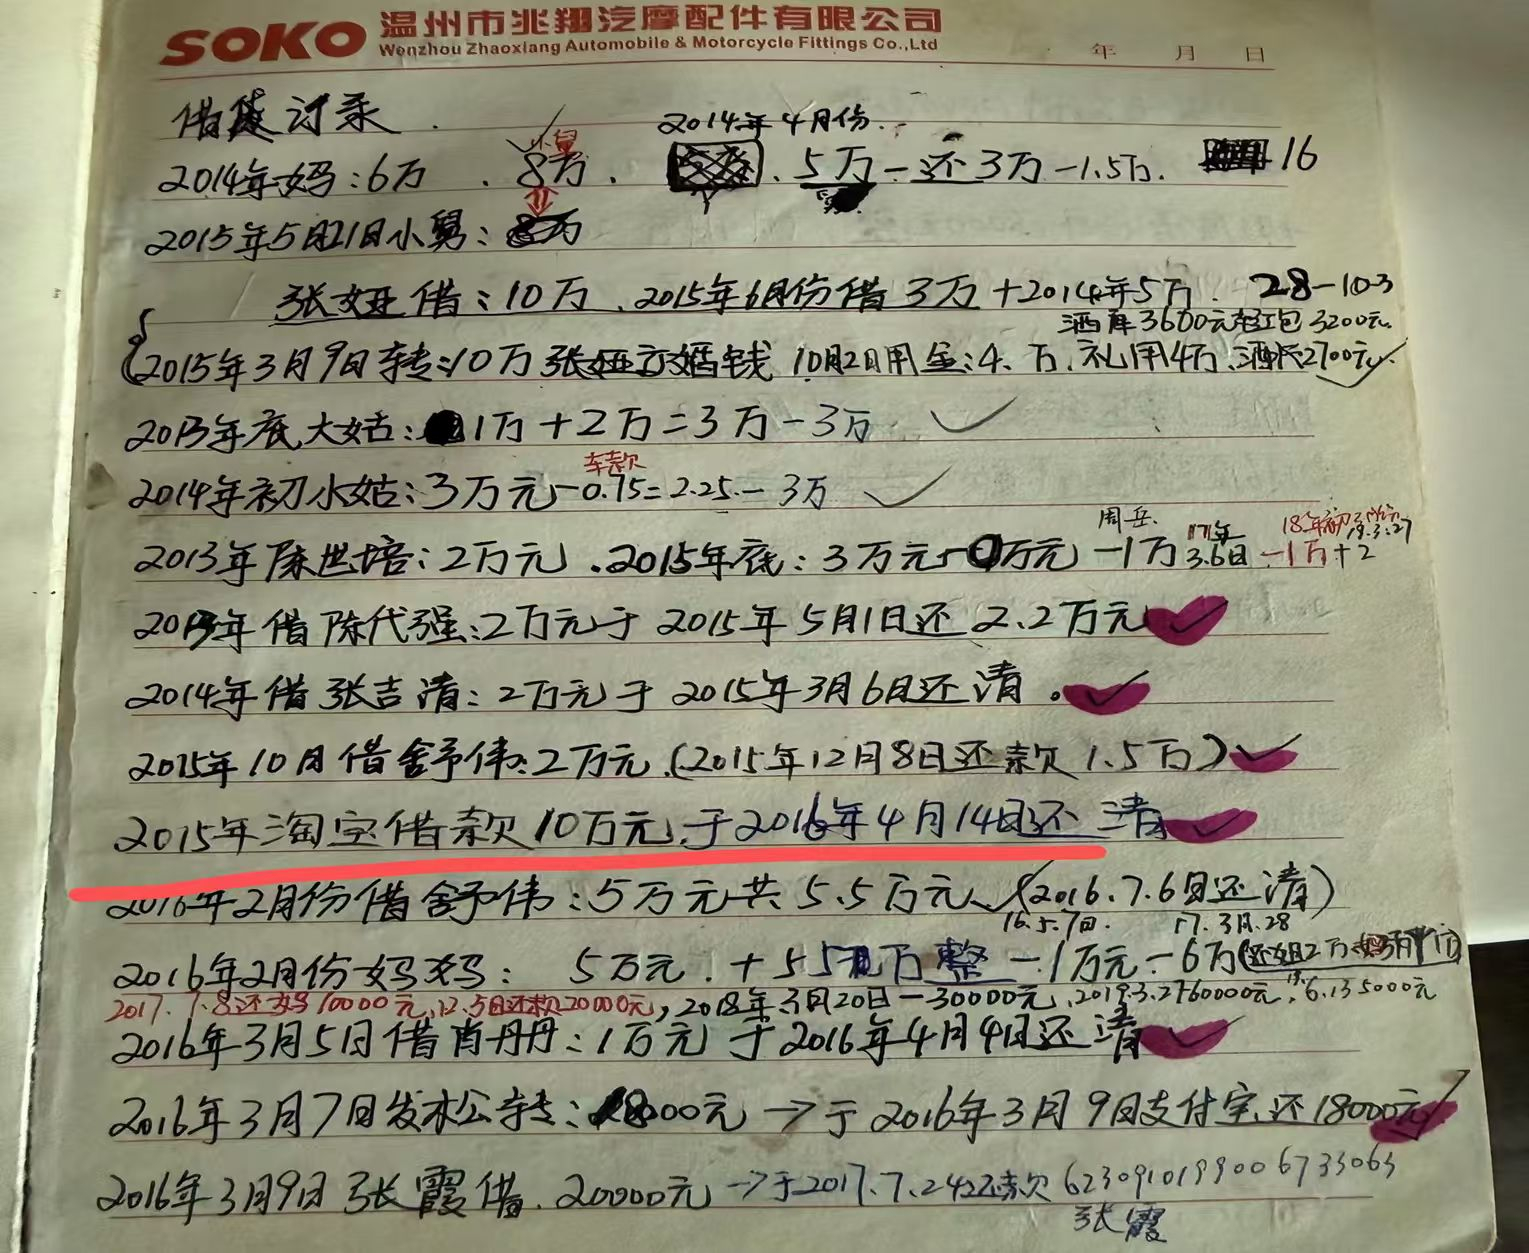 SOKO 温州市兆翔汽摩配件有限公司
Wenzhou Zhaoxiang Automobile & Motorcycle Fittings Co.,Ltd
年 月 日
借 记录
2014年4月份.
2014年妈:6万 . 8万 . 5万-还3万-1.5万. 16
2015年5月21日小舅: 8万
张娅借:10万.2015年6月份借3万+2014年5万. 28-10-3
酒席3600元红包3200元.
2015年3月9日转:10万张娅 婚钱 10月2日用金:4.万.礼用4万.酒 2700元
2013年底大姑: 1万+2万=3万-3万
车款
2014年初小姑:3万元-0.75=2.25.-3万
周岳. 17年 18年初 19.3.27
2013年陈世培:2万元.2015年底:3万元 万元-1万 3.6日 -1万+2
2013年借陈代强:2万元于2015年5月1日还2.2万元
2014年借张吉清:2万元于2015年3月6日还清.
2015年10月借舒伟:2万元.(2015年12月8日还款1.5万)
2015年淘宝借款10万元.于2016年4月14日还清
2016年2月份借舒伟:5万元共5.5万元.(2016.7.6日还清)
16.5.7日. 17.3月.28
2016年2月份妈妈: 5万元.+5 万整-1万元-6万(还姐2万
2017.7.8还妈10000元,12.5日还款20000元,2018年3月20日-30000元,2019.3.2760000元,6.135000元
2016年3月5日借肖丹丹:1万元于2016年4月4日还清
2016年3月7日发水公转: 18000元→于2016年3月9日支付宝还18000元
2016年3月9日张霞借.20000元→于2017.7.24还款6230910199006733063
张霞